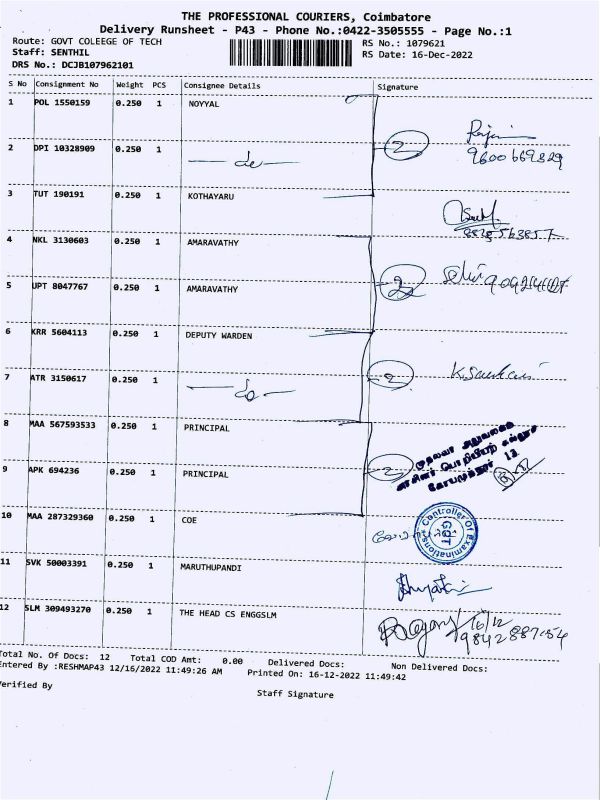 THE PROFESSIONAL COURIERS, Coimbatore
Delivery Runsheet - P43 - Phone No.:0422-3505555 - Page No.:1
Route: GOVT COLEEGE OF TECH RS No.: 1079621
Staff: SENTHIL RS Date: 16-Dec-2022
DRS No.: DCJB107962101
S No Consignment No Weight PCS Consignee Details Signature
1 POL 1550159 0.250 1 NOYYAL
2 DPI 10328909 0.250 1 do 2
9600669829
3 TUT 190191 0.250 1 KOTHAYARU
4 NKL 3130603 0.250 1 AMARAVATHY
5 UPT 8047767 0.250 1 AMARAVATHY 2
6 KRR 5604113 0.250 1 DEPUTY WARDEN
7 ATR 3150617 0.250 1 do 2
8 MAA 567593533 0.250 1 PRINCIPAL
9 APK 694236 0.250 1 PRINCIPAL 2
முதல்வர் அலுவலகம்
அரசினர் பொறியியற் கல்லூரி
கோயமுத்தூர் 13
10 MAA 287329360 0.250 1 COE
Controller Of Examinations
GCT
11 SVK 50003391 0.250 1 MARUTHUPANDI
12 SLM 309493270 0.250 1 THE HEAD CS ENGGSLM
16/12
Total No. Of Docs: 12 Total COD Amt: 0.00 Delivered Docs: Non Delivered Docs:
Entered By :RESHMAP43 12/16/2022 11:49:26 AM Printed On: 16-12-2022 11:49:42
Verified By Staff Signature